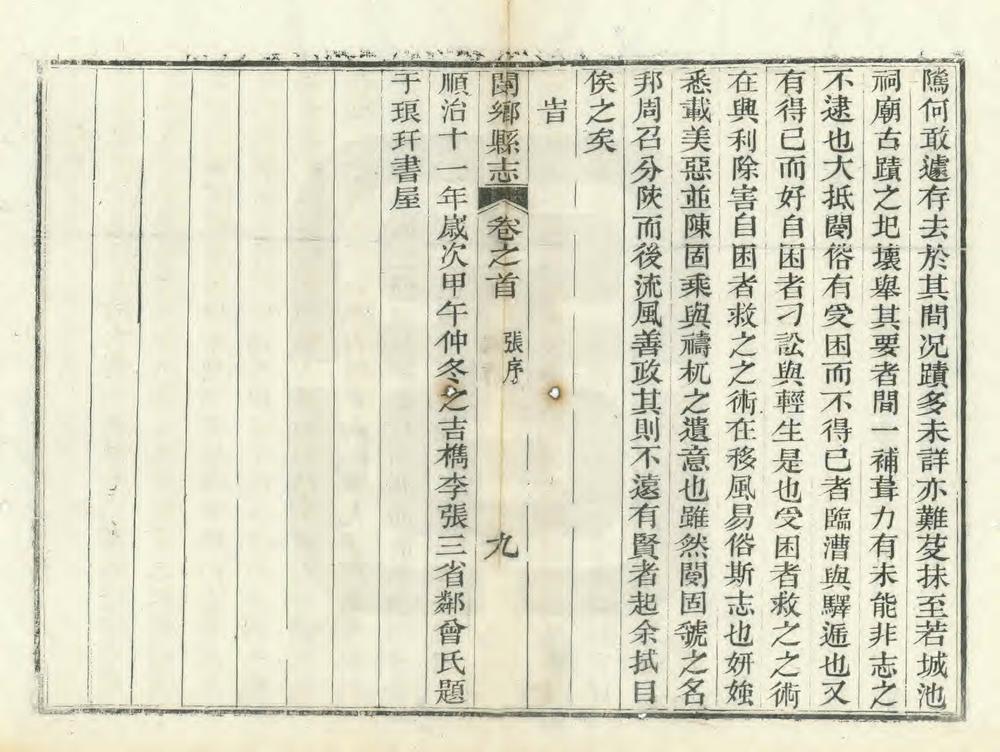 隲何敢遽存去於其間况蹟多未詳亦難芟抹至若城池
祠廟古蹟之圯壞舉其要者間一補葺力有未能非志之
不逮也大抵閿俗有受困而不得已者臨漕與驛遞也又
有得已而好自困者刁訟與輕生是也受困者救之之術
在興利除害自困者救之之術在移風易俗斯志也妍媸
悉載美惡並陳固乘與禱杌之遺意也雖然閿固虢之名
邦周召分陝而後流風善政其則不遠有賢者起余拭目
俟之矣
旹
閿鄉縣志 卷之首 張序 九
順治十一年歲次甲午仲冬之吉檇李張三省鄰曾氏題
于琅玕書屋